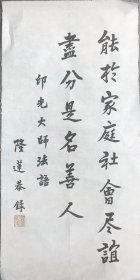 能於家庭社會尽誼
盡分是名善人
印光大師法語
隆蓮恭録